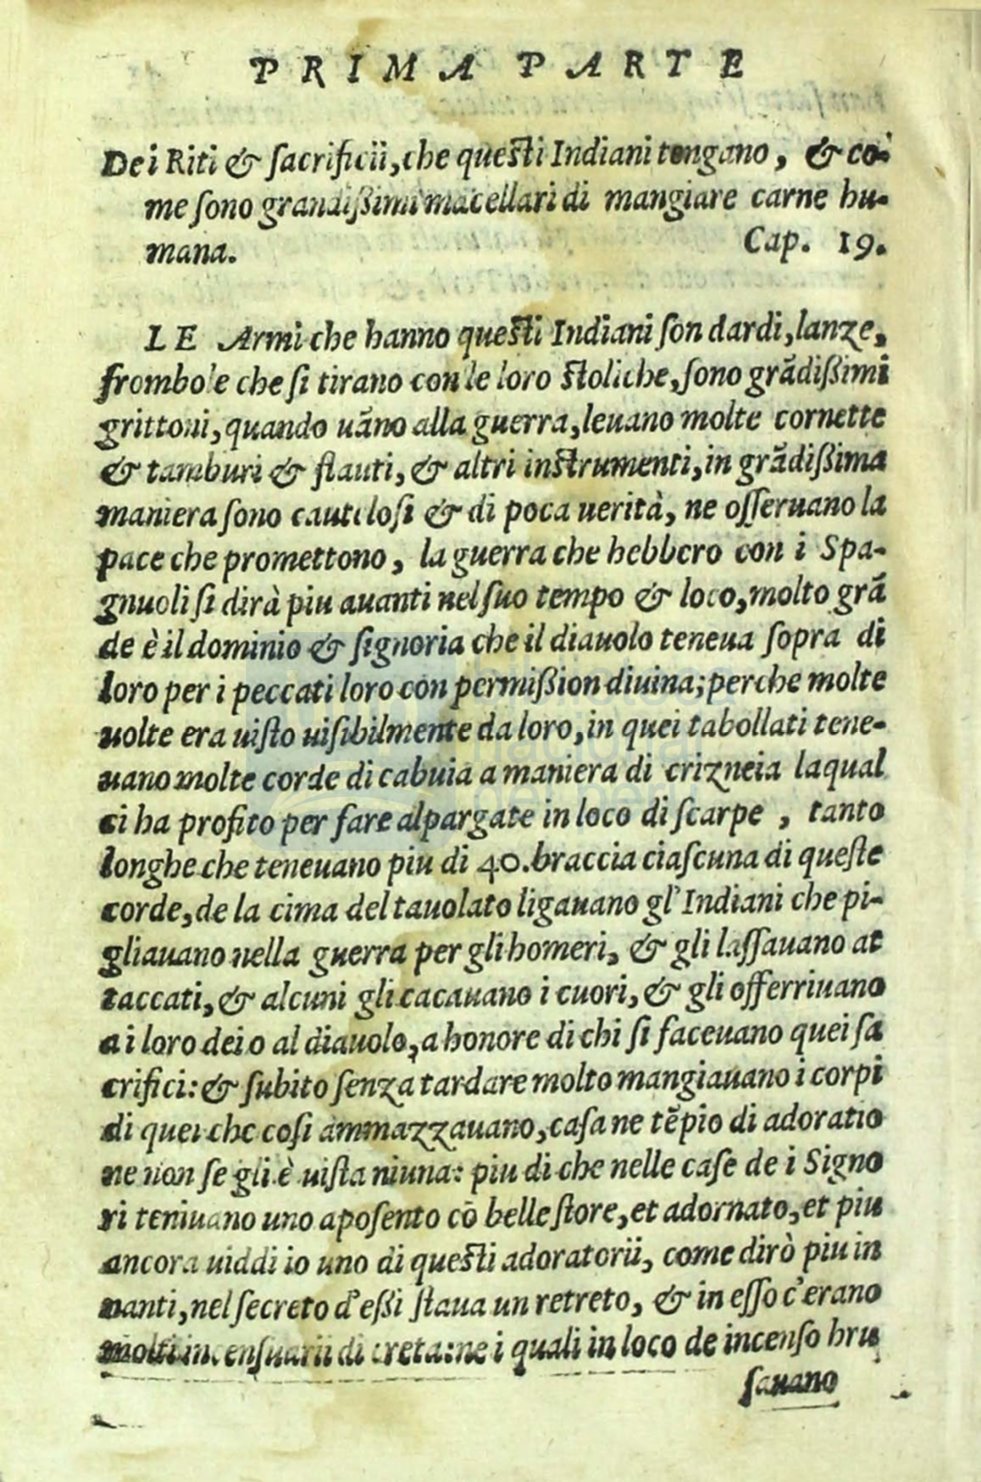 PRIMA PARTE
De i Riti & sacrificii, che questi Indiani tengano, & co-
me sono grandißimi macellari di mangiare carne hu-
mana. Cap. 19.
LE Armi che hanno questi Indiani son dardi, lanze,
frombole che si tirano con le loro stoliche, sono grãdißimi
grittoni, quando uãno alla guerra, leuano molte cornette
& tamburi & flauti, & altri instrumenti, in grãdißima
maniera sono cautelosi & di poca uerità, ne osseruano la
pace che promettono, la guerra che hebbero con i Spa-
gnuoli si dirà piu auanti nel suo tempo & loco, molto grã
de è il dominio & signoria che il diauolo teneua sopra di
loro per i peccati loro con permißion diuina; perche molte
uolte era uisto uisibilmente da loro, in quei tabollati tene-
uano molte corde di cabuia a maniera di crizneia laqual
ci ha profito per fare alpargate in loco di scarpe , tanto
longhe che teneuano piu di 40. braccia ciascuna di queste
corde, de la cima del tauolato ligauano gl' Indiani che pi-
gliauano nella guerra per gli homeri, & gli lassauano at
taccati, & alcuni gli cacauano i cuori, & gli offerriuano
a i loro dei o al diauolo, a honore di chi si faceuano quei sa
crifici: & subito senza tardare molto mangiauano i corpi
di quei che cosi ammazzauano, casa ne tẽpio di adoratio
ne non se gli è uista niuna: piu di che nelle case de i Signo
ri teniuano uno aposento cõ belle store, et adornato, et piu
ancora uiddi io uno di questi adoratorii, come dirò piu in
nanti, nel secreto d'eßi staua un retreto, & in esso c'erano
molti incensuarii di creta: ne i quali in loco de incenso bru
sauano